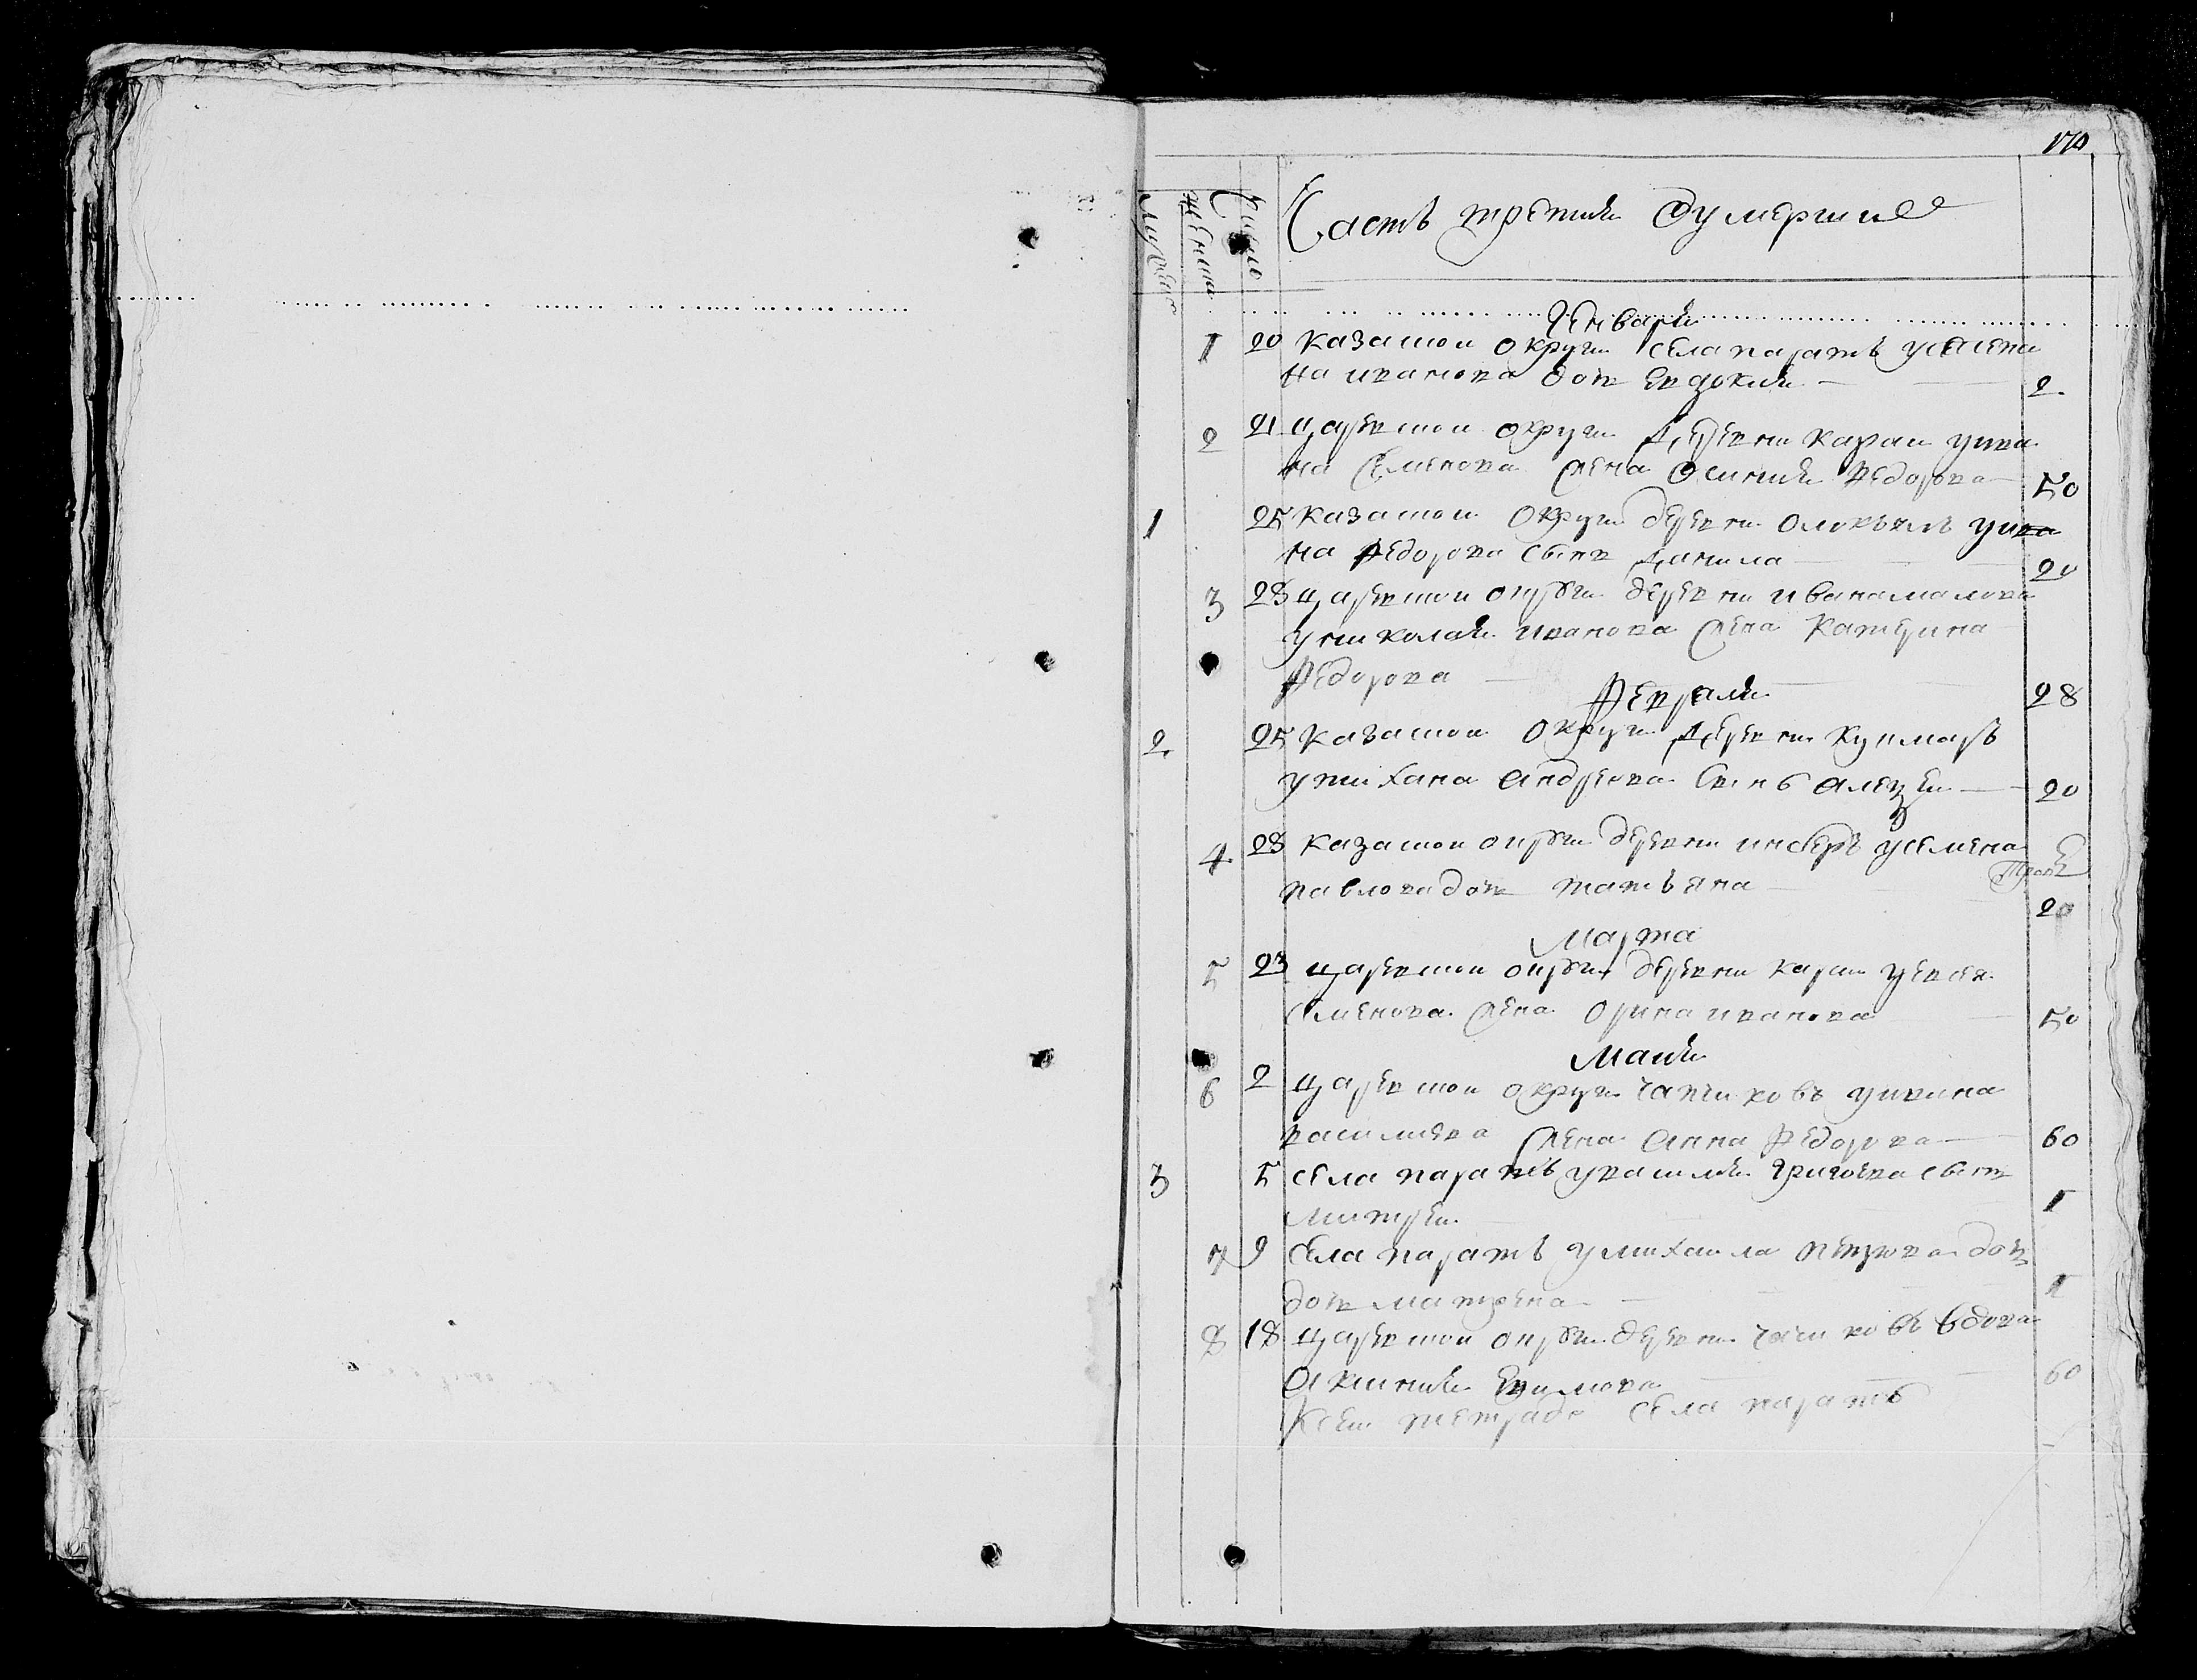 170
Мужеска
Женска
Число
Часть третия оумершие
Генваря
1 20 казацкои округи села паратъ усемена
на иванова дочь Евдокия 2
2 21 царевцкои округи деревни караи уива
на Семенова жена Ѳсиния Федорова 50
1 25 казацкои округи деревни уива
на Федорова сынъ Данила 20
3 28 царевцкои округи деревни иванамалова
униколая иванова жена Катерина
Федорова 28
Февраля
2 25 казацкои округи Деревни
устихана андреева сынъ алецеи 20
4 28 казацкои округи деревни усемена
павлова дочь татьяна 20
Марта
5 23 царевцкои округи деревни караи
семенова жена Орина иванова 50
Маия
6 2 царевцкои округи уивана
василиева жена Анна Федорова 60
3 5 села паратъ увасилия Григоева сынъ
митреи 1
7 9 села паратъ умихаила петрова доч
дочь матрена 1
8 18 царевцкои округи деревни вдова
Аксиния Ефимова 60
Ксеи тетраде села паратъ